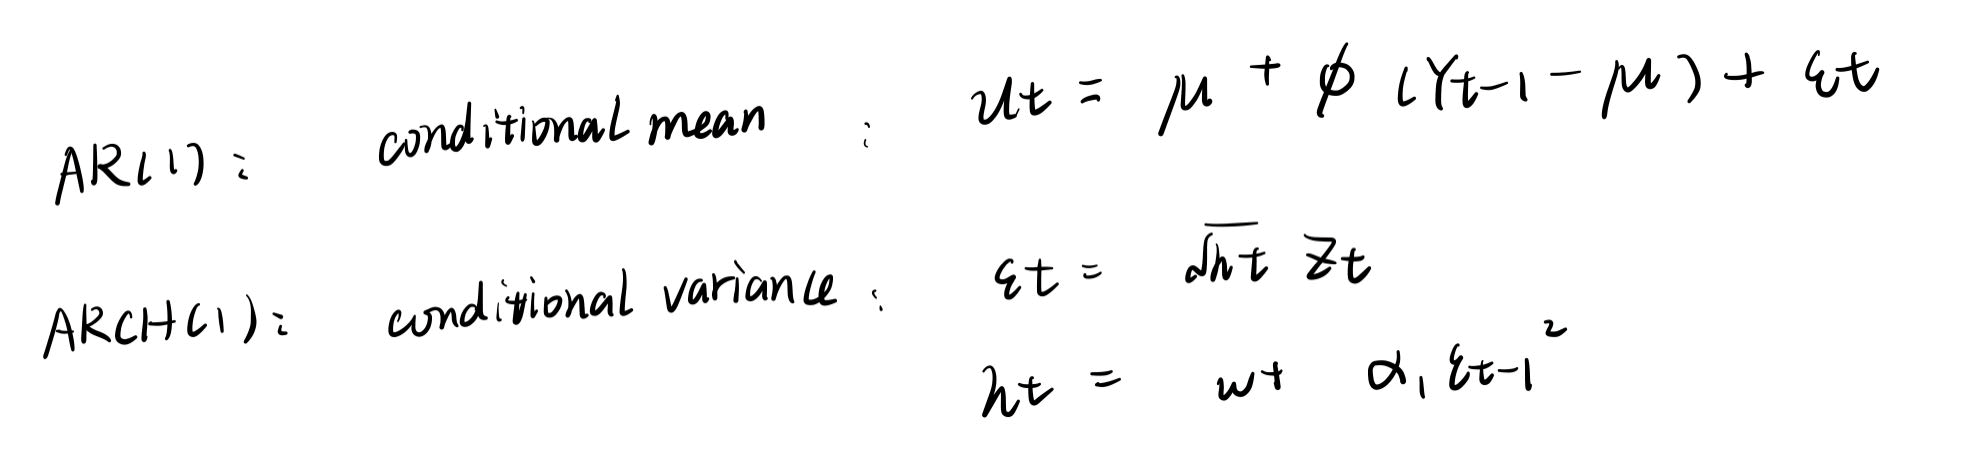 AR(1): conditional mean : ut = μ + φ (Yt-1 - μ) + εt
ARCH(1): conditional variance : εt = √ht Zt
ht = w + α1 εt-1²